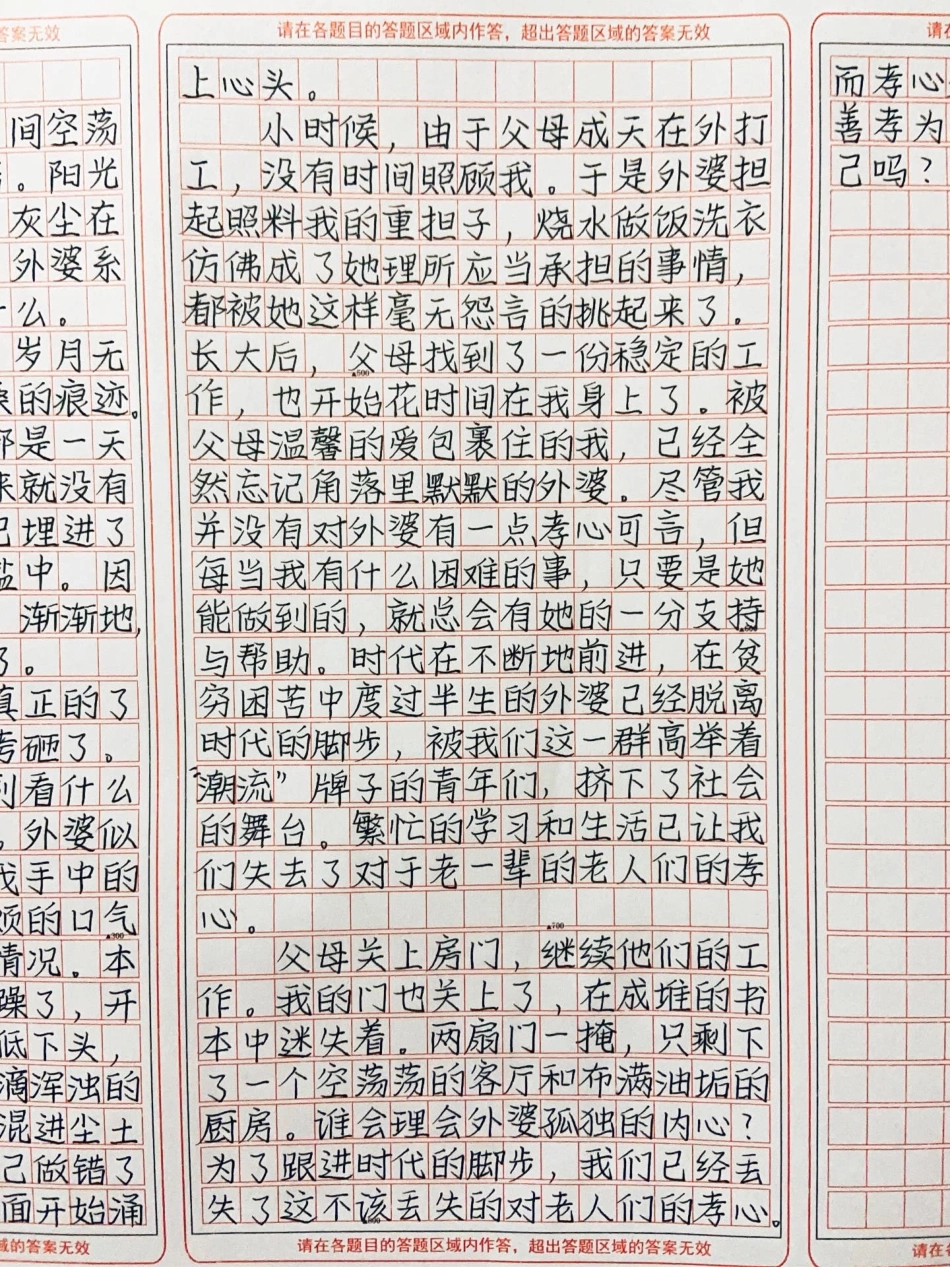 答案无效
间空荡
。阳光
灰尘在
外婆系
么。
岁月无
的痕迹。
是一天
就没有
埋进了
中。因
渐渐地,
。
真正的了
考砸了。
到看什么
,外婆似
我手中的
烦的口气
▲300
情况。本
躁了,开
低下头,
滴浑浊的
混进尘土
己做错了
面开始涌
域的答案无效
请在各题目的答题区域内作答,超出答题区域的答案无效
上心头。
小时候,由于父母成天在外打
工,没有时间照顾我。于是外婆担
起照料我的重担子,烧水做饭洗衣
仿佛成了她理所应当承担的事情,
都被她这样毫无怨言的挑起来了。
长大后,父母找到了一份稳定的工
▲500
作,也开始花时间在我身上了。被
父母温馨的爱包裹住的我,已经全
然忘记角落里默默的外婆。尽管我
并没有对外婆有一点孝心可言,但
每当我有什么困难的事,只要是她
能做到的,就总会有她的一分支持
▲600
与帮助。时代在不断地前进,在贫
穷困苦中度过半生的外婆已经脱离
时代的脚步,被我们这一群高举着
“潮流”牌子的青年们,挤下了社会
的舞台。繁忙的学习和生活已让我
们失去了对于老一辈的老人们的孝
心。
▲700
父母关上房门,继续他们的工
作。我的门也关上了,在成堆的书
本中迷失着。两扇门一掩,只剩下
了一个空荡荡的客厅和布满油垢的
厨房。谁会理会外婆孤独的内心?
为了跟进时代的脚步,我们已经丢
失了这不该丢失的对老人们的孝心。
▲800
请在各题目的答题区域内作答,超出答题区域的答案无效
请在
而孝心
善孝为
己吗?
请在各